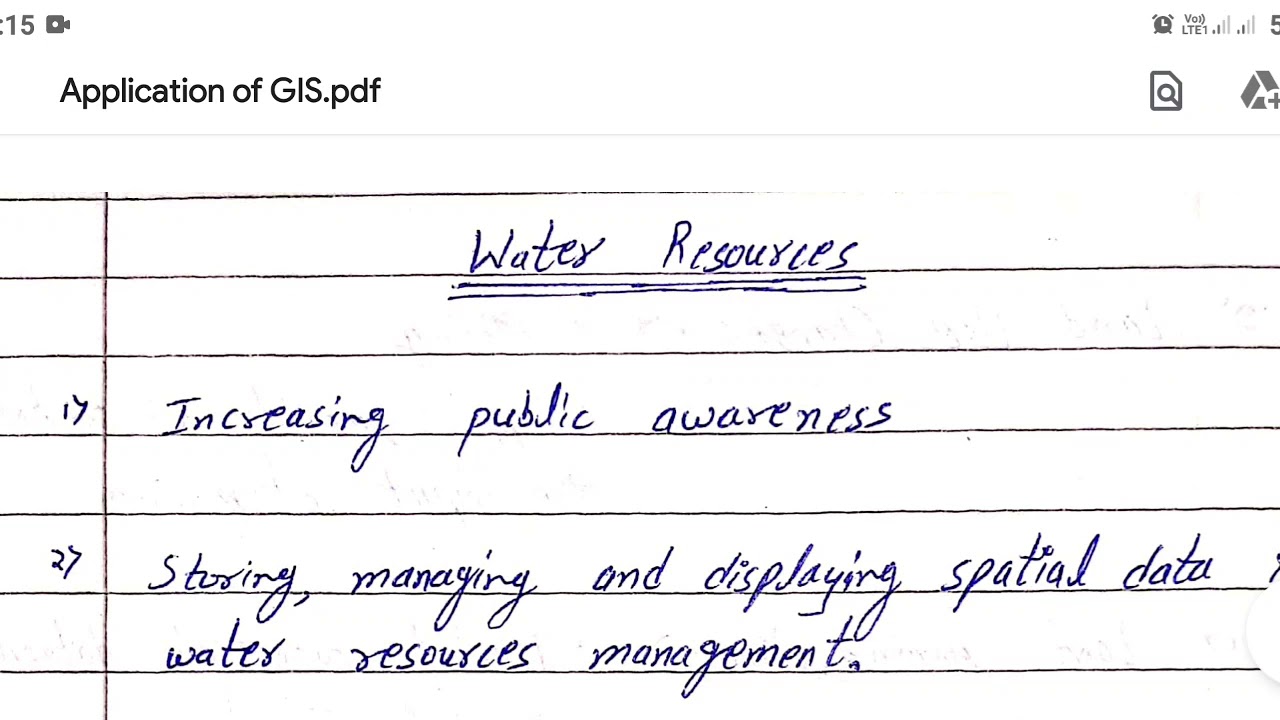 :15
Vo))
LTE1
5
Application of GIS.pdf
Water Resources
1> Increasing public awareness
2> Storing, managing and displaying spatial data
water resources management.